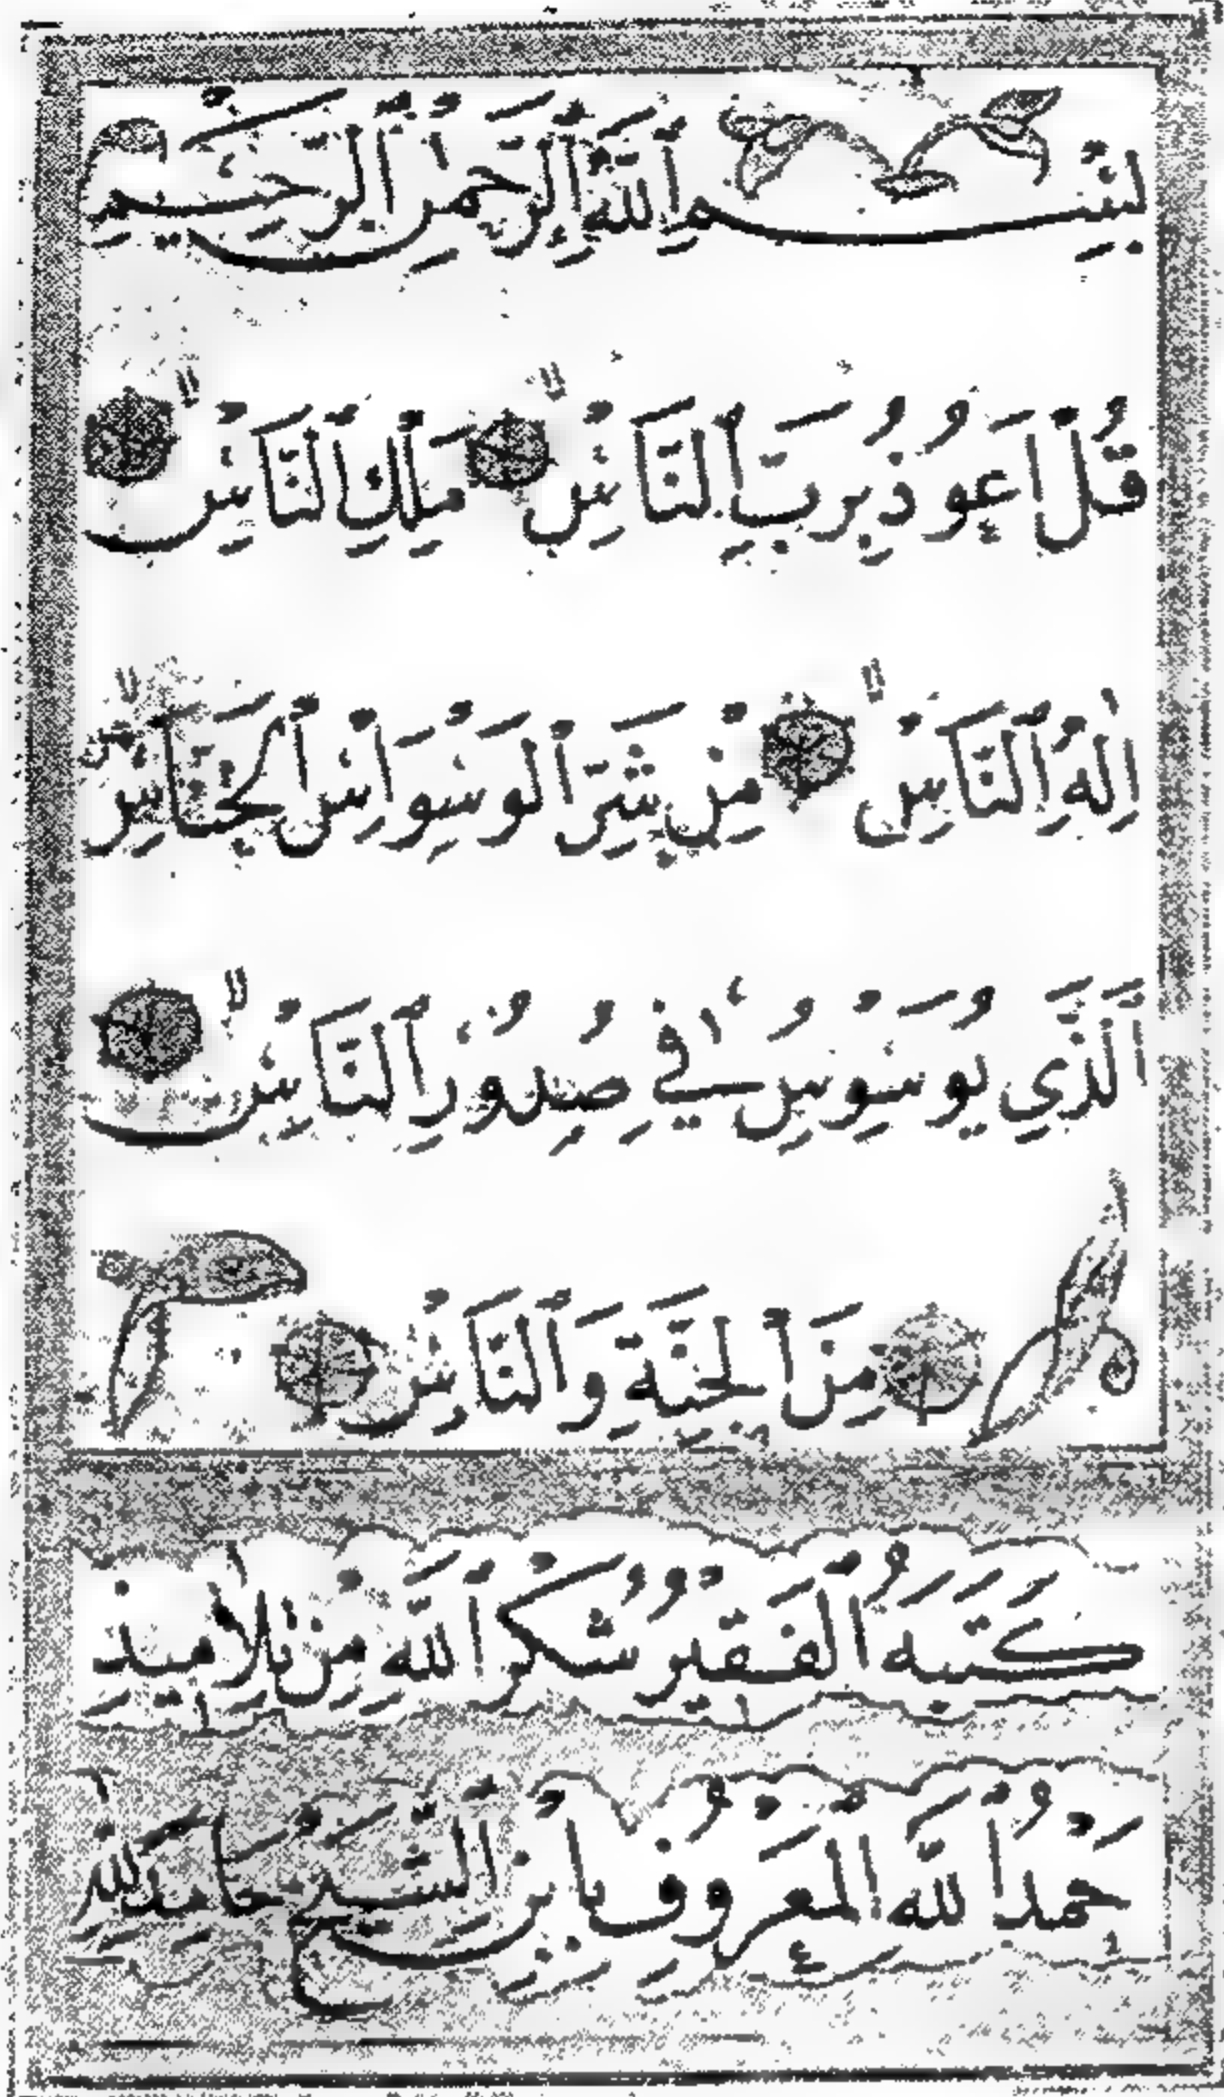 بِسْمِ اللَّهِ الرَّحْمٰنِ الرَّحِيمِ
قُلْ اَعُوذُ بِرَبِّ النَّاسِ مَلِكِ النَّاسِ
اِلٰهِ النَّاسِ مِنْ شَرِّ الْوَسْوَاسِ الْخَنَّاسِ
اَلَّذِي يُوَسْوِسُ فِي صُدُورِ النَّاسِ
مِنَ الْجِنَّةِ وَالنَّاسِ
كَتَبَهُ الْفَقِيرُ شُكْرُ اللَّهِ مِنْ تَلَامِيذِ
حَمْدُ اللَّهِ الْمَعْرُوفِ بِابْنِ الشَّيْخِ